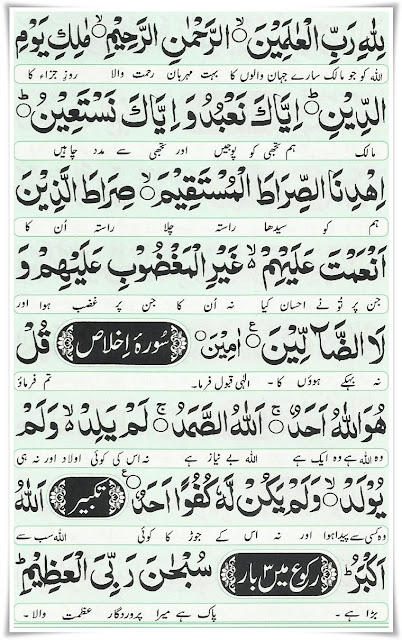 لِلّٰهِ رَبِّ الْعٰلَمِیْنَ ۙ الرَّحْمٰنِ الرَّحِیْمِ ۙ مٰلِكِ یَوْمِ
اللہ کو جو مالک سارے جہان والوں کا بہت مہربان رحمت والا روزِ جزاء کا
الدِّیْنِ ؕ اِیَّاكَ نَعْبُدُ وَ اِیَّاكَ نَسْتَعِیْنُ ؕ
مالک ہم تجھی کو پوجیں اور تجھی سے مدد چاہیں
اِهْدِنَا الصِّرَاطَ الْمُسْتَقِیْمَ ۙ صِرَاطَ الَّذِیْنَ
ہم کو سیدھا راستہ چلا راستہ اُن کا
اَنْعَمْتَ عَلَیْهِمْ ۙ غَیْرِ الْمَغْضُوْبِ عَلَیْهِمْ وَ
جن پر تُو نے احسان کیا نہ اُن کا جن پر غضب ہوا اور
لَا الضَّآلِّیْنَ ۠ اٰمِیْن سُورۂ اِخلاص قُلْ
نہ بہکے ہوؤں کا ۔ الٰہی قبول فرما۔ تم فرماؤ
هُوَ اللّٰهُ اَحَدٌ ۚ اَللّٰهُ الصَّمَدُ ۚ لَمْ یَلِدْ ۙ وَ لَمْ
وہ اللہ ہے وہ ایک ہے اللہ بے نیاز ہے نہ اس کی کوئی اولاد اور نہ ہی
یُوْلَدْ ۙ وَ لَمْ یَكُنْ لَّهٗ كُفُوًا اَحَدٌ ۠ تکبیر اَللّٰهُ
وہ کسی سے پیدا ہوا اور نہ اس کے جوڑ کا کوئی اللہ سب سے
اَكْبَرُ ؕ رکوع میں ۳ بار سُبْحٰنَ رَبِّیَ الْعَظِیْمِ ؕ
بڑا ہے ۔ پاک ہے میرا پروردگار عظمت والا ۔